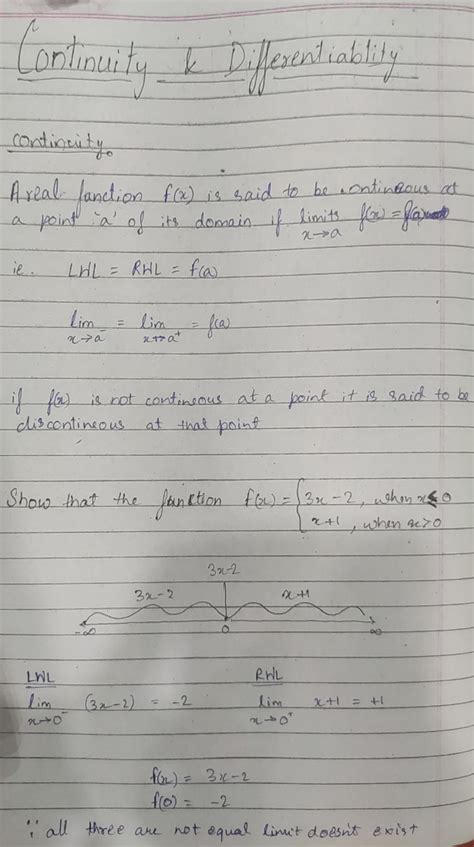 Continuity & Differentiablity
Continuity
A real function f(x) is said to be continuous at
a point 'a' of its domain if limits x→a f(x) = f(a)
ie. LHL = RHL = f(a)
lim x→a⁻ = lim x→a⁺ = f(a)
if f(x) is not contineous at a point it is said to be
discontineous at that point
Show that the function f(x) = { 3x-2, when x≤0
x+1, when x>0
3x-2
3x-2 x+1
-∞ 0 ∞
LHL RHL
lim x→0⁻ (3x-2) = -2 lim x→0⁺ x+1 = +1
f(x) = 3x-2
f(0) = -2
∵ all three are not equal limit doesn't exist